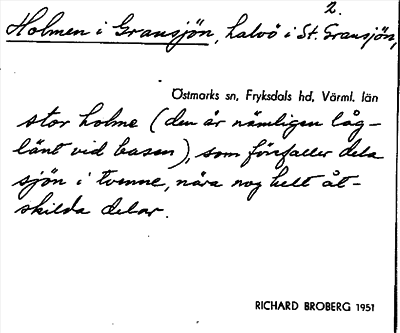 2.
Holmen i Gransjön, halvö i St. Gransjön,
Östmarks sn, Fryksdals hd, Värml. län
stor holme (den är nämligen låg-
länt vid basen), som förefaller dela
sjön i tvenne, nära nog helt åt-
skilda delar.
RICHARD BROBERG 1951